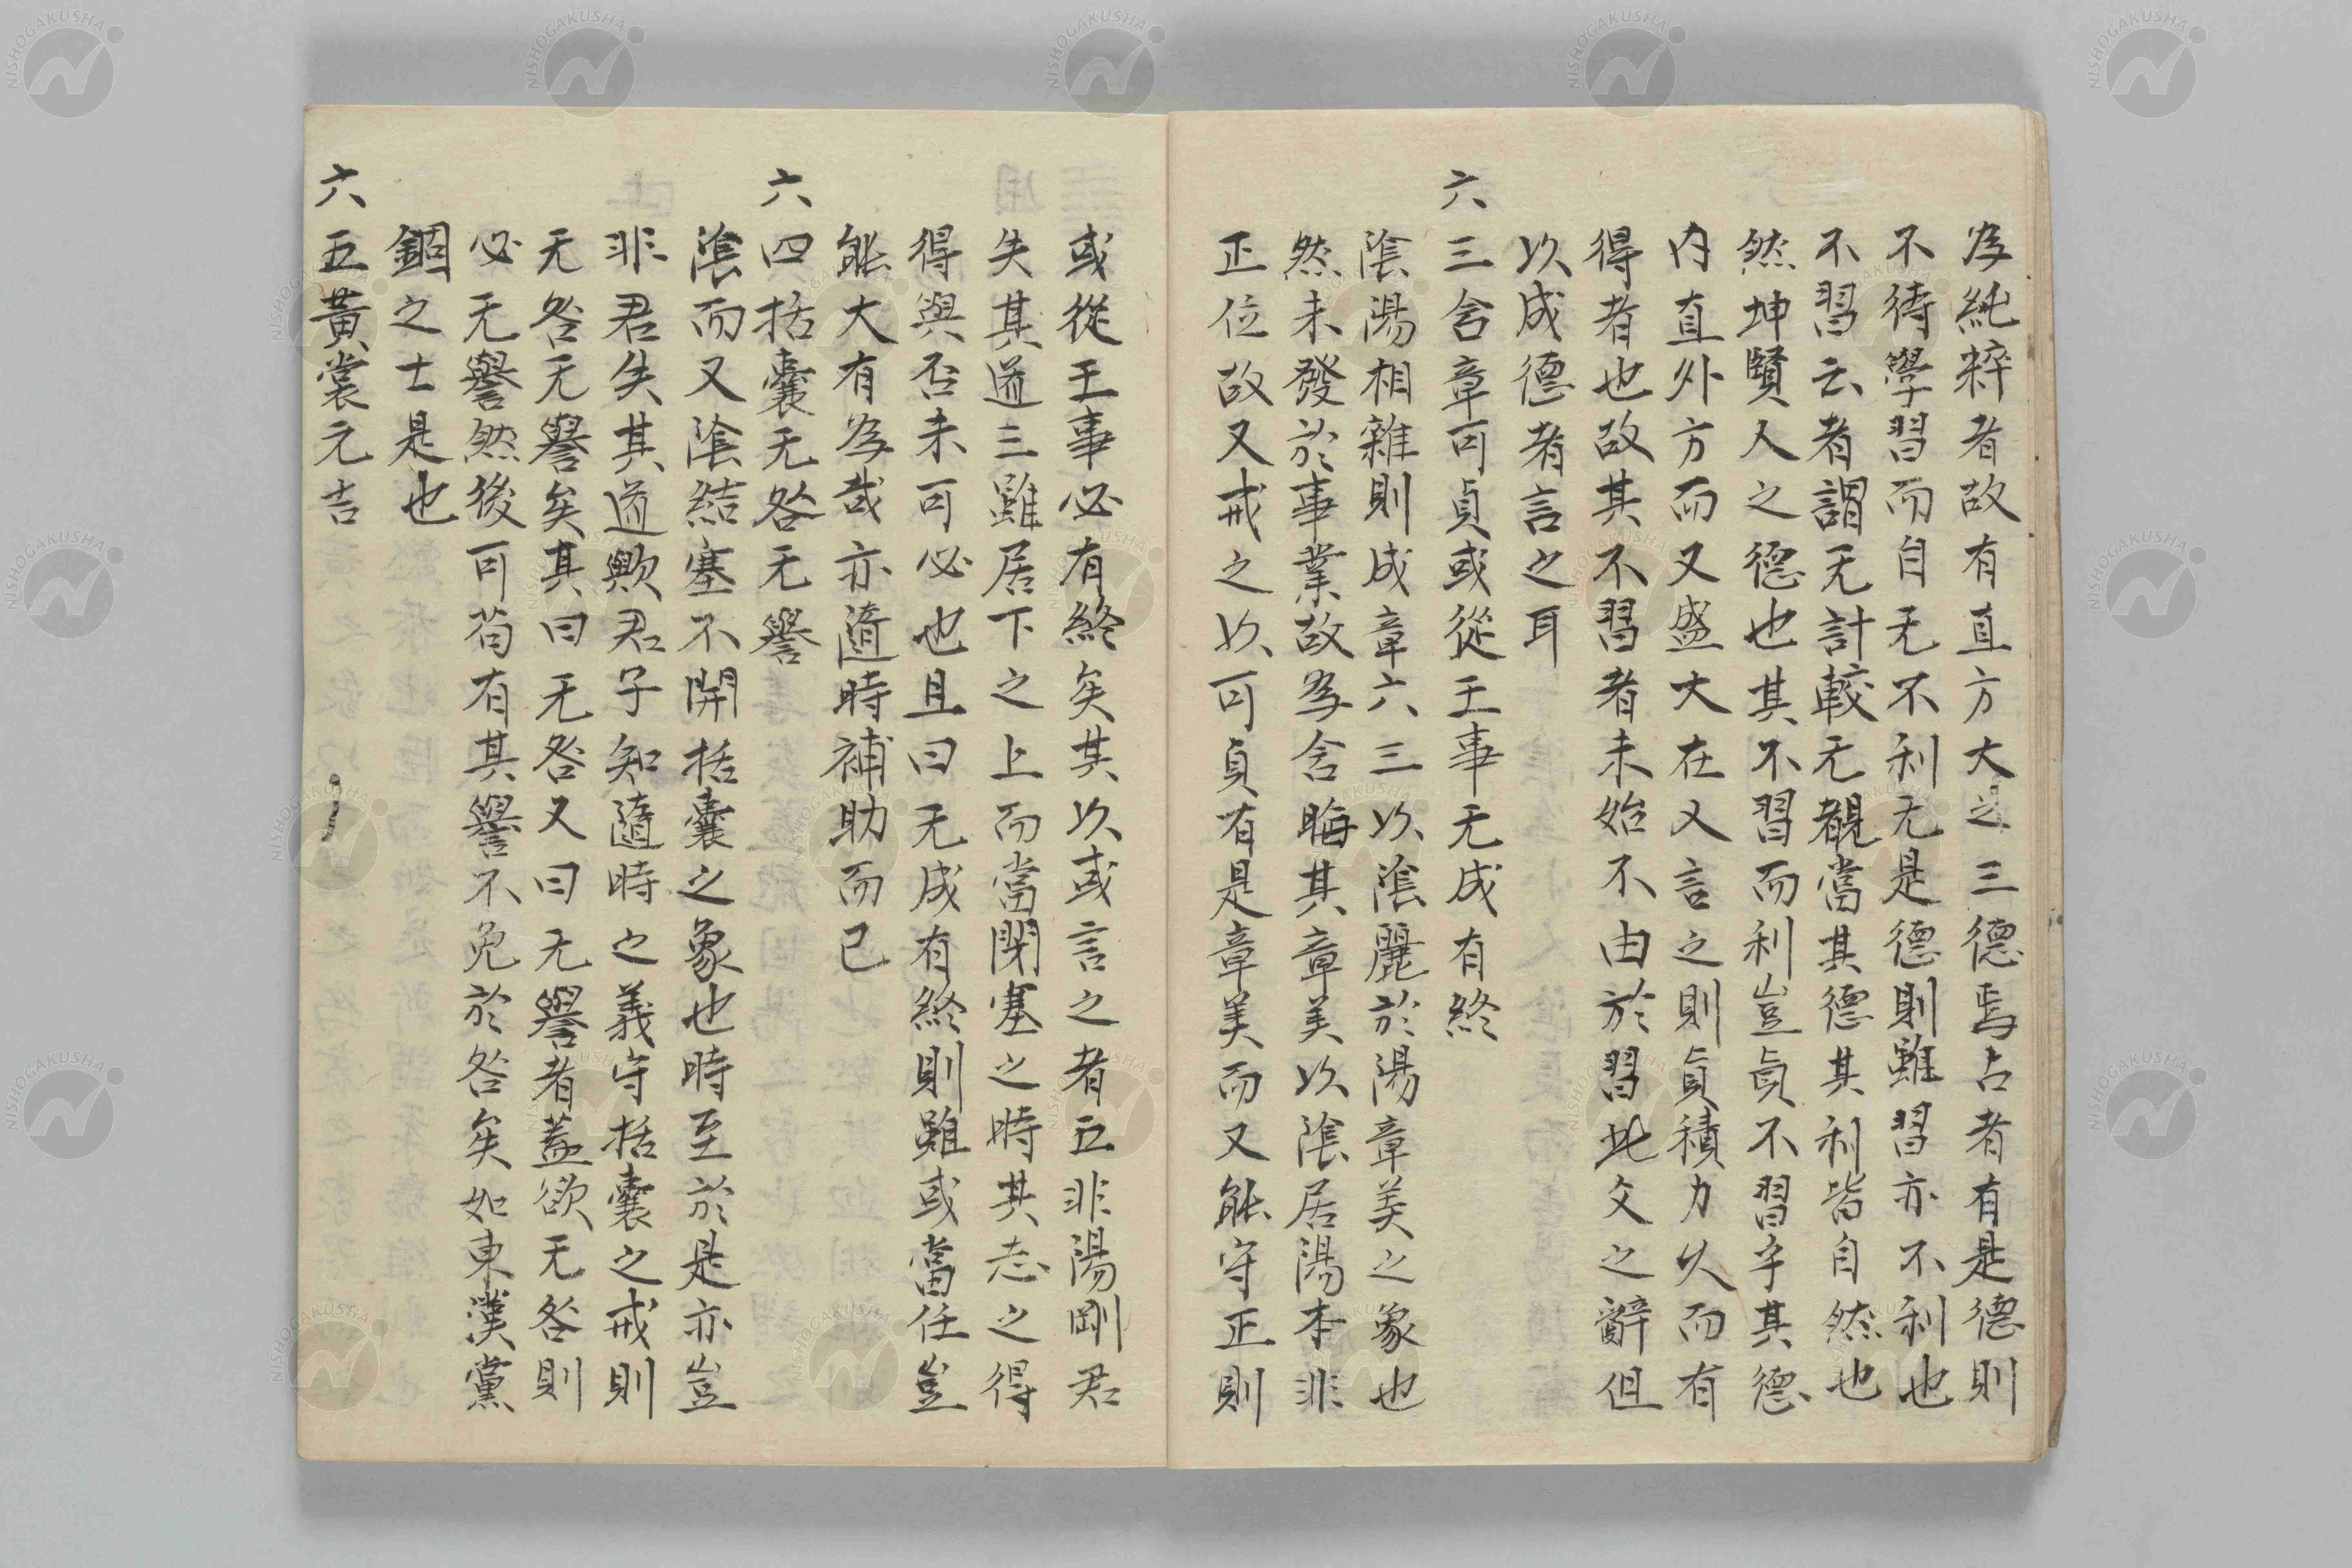 為純粹者故有直方大之三德焉占者有是德則
不待學習而自无不利无是德則雖習亦不利也
不習云者謂无計較无覩當其德其利皆自然也
然坤賢人之德也其不習而利豈貞不習乎其德
內直外方而又盛大在文言之則貞積力久而有
得者也故其不習者未始不由於習此文之辭但
以成德者言之耳
六三含章可貞或從王事无成有終
陰陽相雜則成章六三以陰麗於陽章美之象也
然未發於事業故為含晦其章美以陰居陽本非
正位故又戒之以可貞有是章美而又能守正則
或從王事必有終矣其以或言之者五非陽剛君
失其道三雖居下之上而當閉塞之時其志之得
得與否未可必也且曰无成有終則雖或當任豈
能大有為哉亦隨時補助而已
六四括囊无咎无譽
陰而又陰結塞不開括囊之象也時至於是亦豈
非君失其道歟君子知隨時之義守括囊之戒則
无咎无譽矣其曰无咎又曰无譽者蓋欲无咎則
必无譽然後可苟有其譽不免於咎矣如東漢黨
錮之士是也
六五黃裳元吉
NISHOGAKUSHA